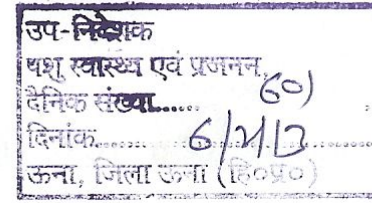 उप-निदेशक
पशु स्वास्थ्य एवं प्रजनन,
दैनिक संख्या......601
दिनांक...........
ऊना, जिला ऊना (हि०प्र०)